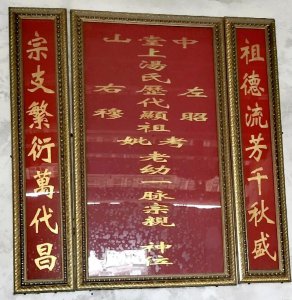 祖德流芳千秋盛
中山
堂上湯氏歷代顯祖考妣老幼一脉宗親 神位
左昭
右穆
宗支繁衍萬代昌